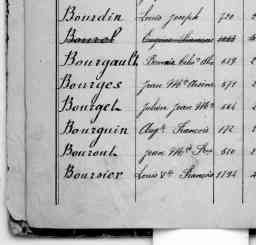 Bourdin Louis Joseph 720 2
Bourel Eugène
Bourgault 619 2
Bourges Jean Mie 871 2
Bourget Julien Jean Mie 464 2
Bourquin Augte François 172 2
Bourout Jean Mte 510 2
Boursier Louis Vr François 1194 4